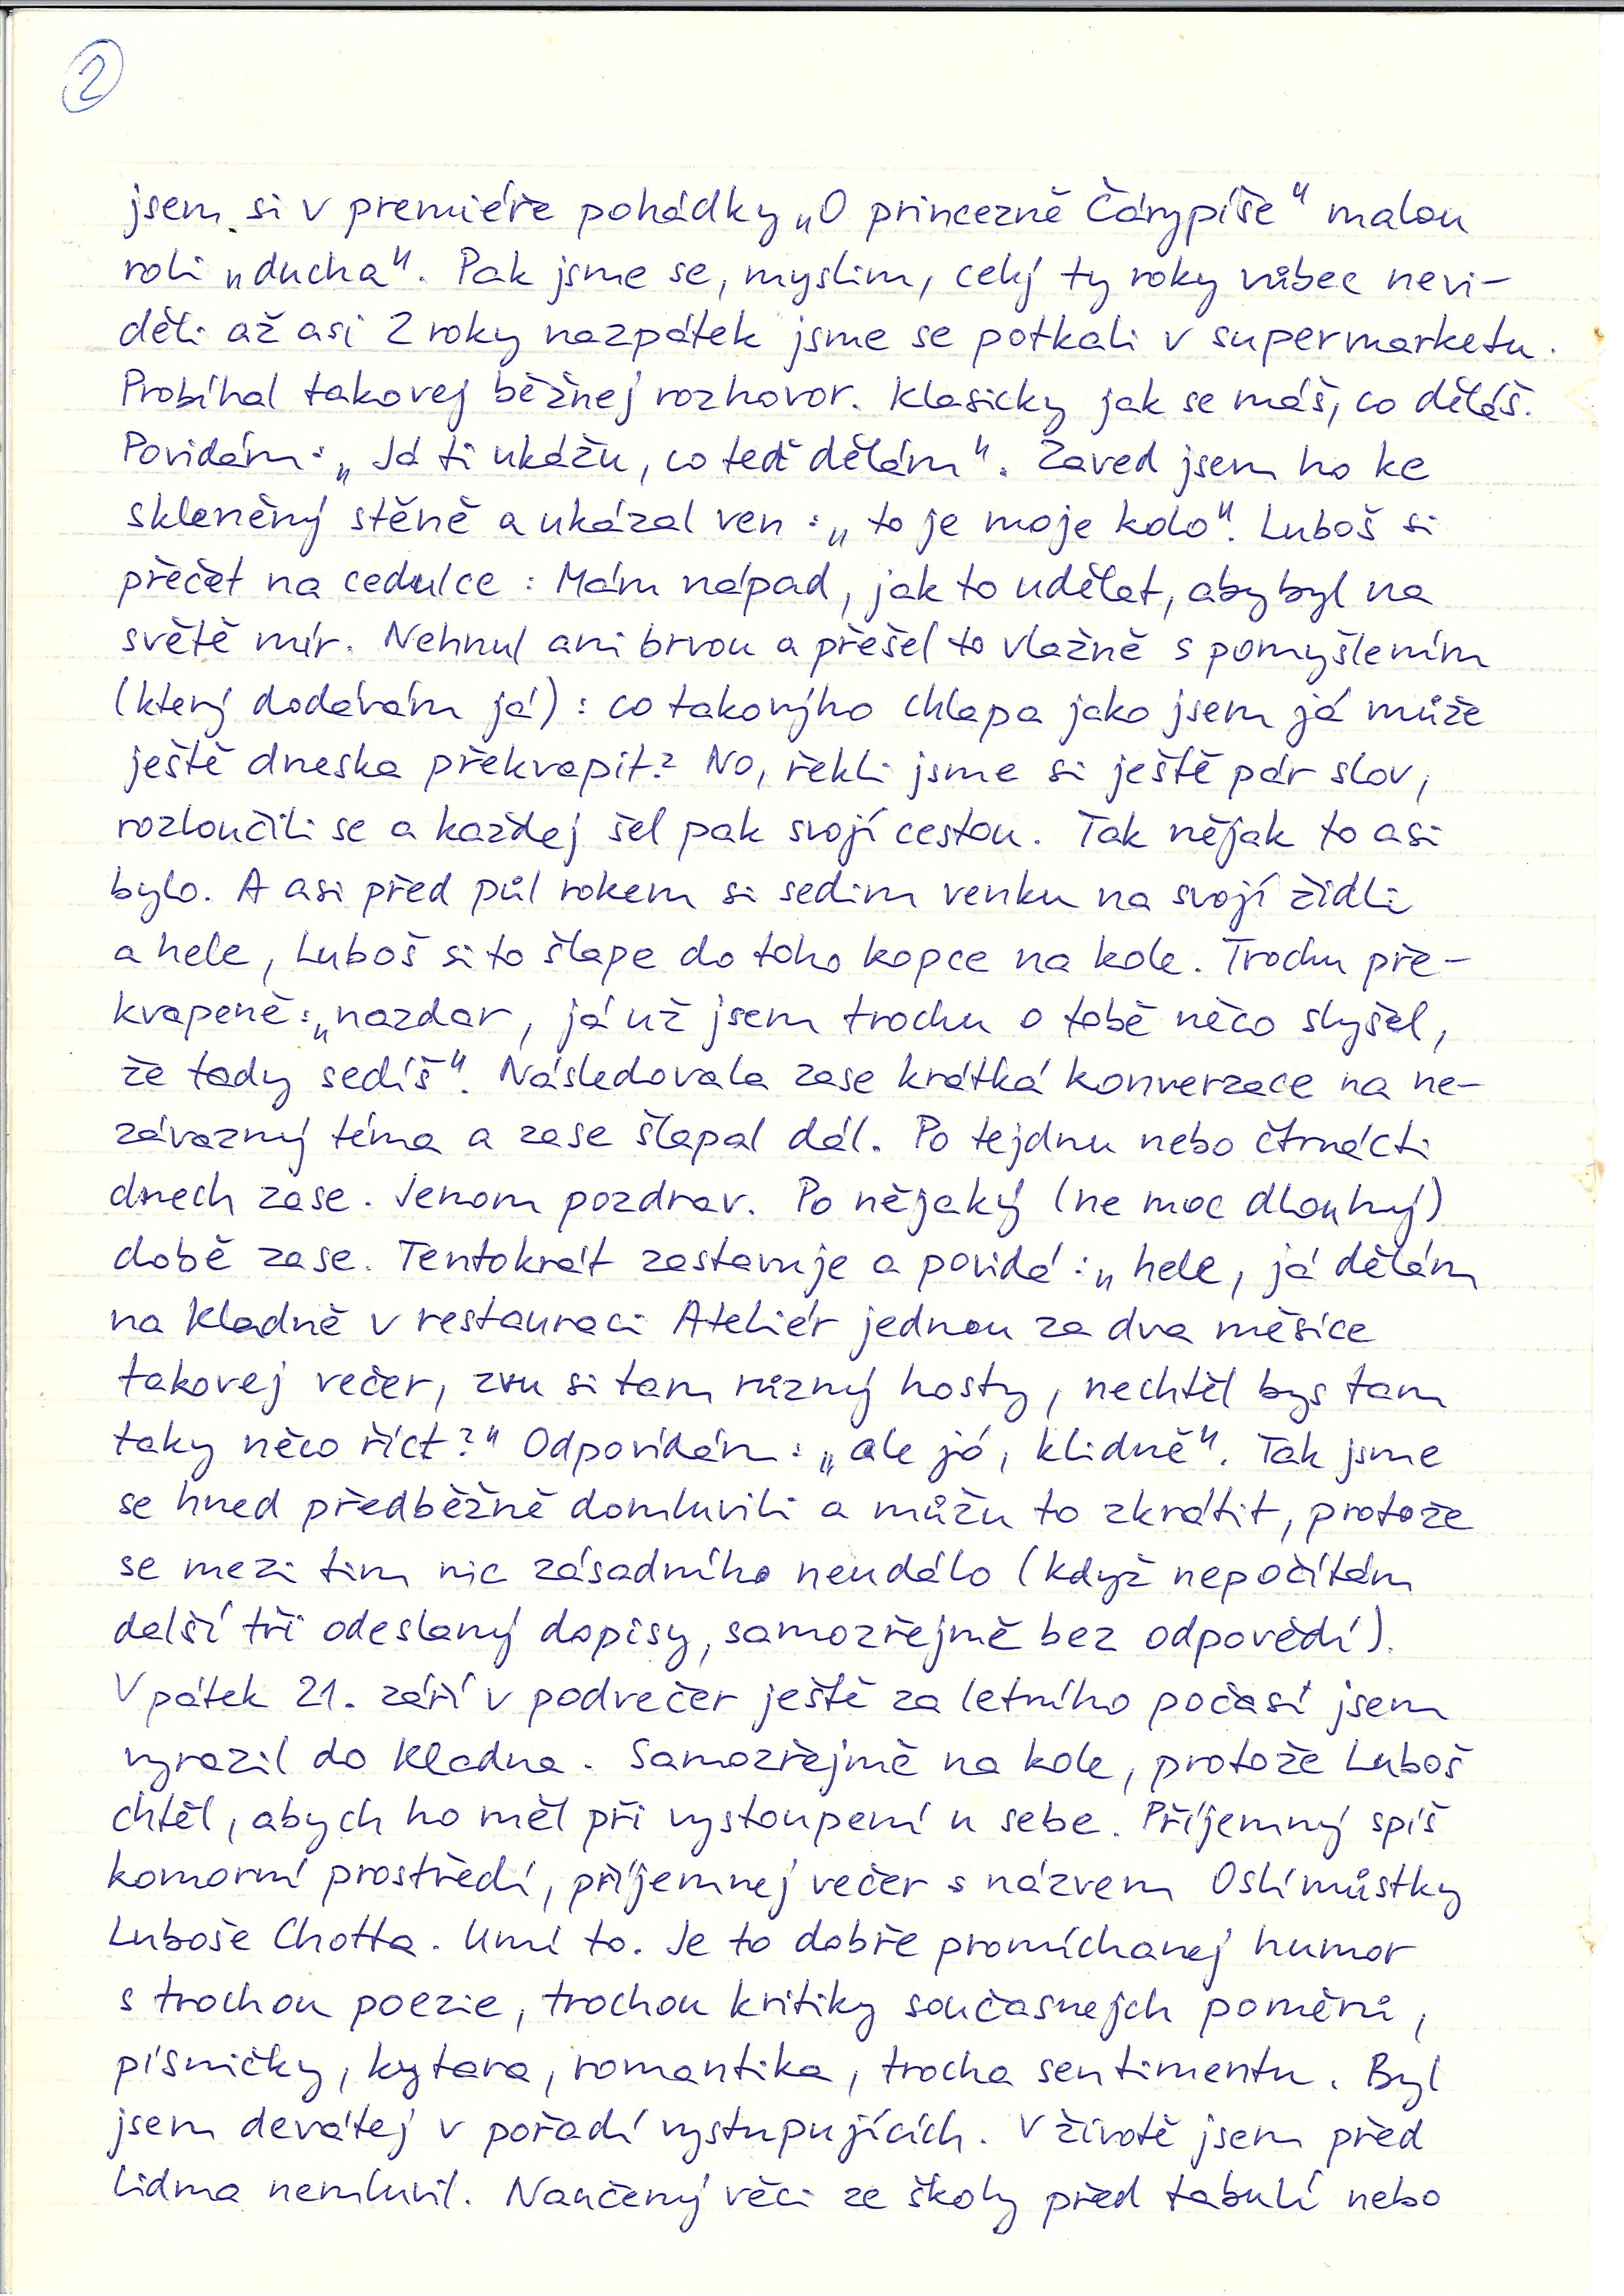 2
jsem si v premiéře pohádky „O princezně Čárypíše" malou
roli „ducha". Pak jsme se, myslim, celý ty roky vůbec nevi-
děli až asi 2 roky nazpátek jsme se potkali v supermarketu.
Probíhal takovej běžnej rozhovor. Klasicky jak se máš, co děláš.
Povidám: „Já ti ukážu, co teď dělám". Zaved jsem ho ke
skleněný stěně a ukázal ven: „to je moje kolo". Luboš si
přečet na cedulce: Mám nápad, jak to udělat, aby byl na
světě mír. Nehnul ani brvou a přešel to vlažně s pomyšlením
(který dodávám já): co takovýho chlapa jako jsem já může
ještě dneska překvapit? No, řekli jsme si ještě pár slov,
rozloučili se a každej šel pak svojí cestou. Tak nějak to asi
bylo. A asi před půl rokem si sedim venku na svojí židli
a hele, Luboš si to šlape do toho kopce na kole. Trochu pře-
kvapeně: „nazdar, já už jsem trochu o tobě něco slyšel,
že tady sedíš". Následovala zase krátká konverzace na ne-
závazný téma a zase šlapal dál. Po tejdnu nebo čtrnácti
dnech zase. Jenom pozdrav. Po nějaký (ne moc dlouhý)
době zase. Tentokrát zastavuje a povidá: „hele, já dělám
na Kladně v restauraci Ateliér jednou za dva měsíce
takovej večer, zvu si tam různý hosty, nechtěl bys tam
taky něco říct?" Odpovídám: „ale jó, klidně". Tak jsme
se hned předběžně domluvili a můžu to zkrátit, protože
se mezi tim nic zásadního neudálo (když nepočítám
delší tři odeslaný dopisy, samozřejmě bez odpovědí).
V pátek 21. září v podvečer ještě za letního počasí jsem
vyrazil do Kladna. Samozřejmě na kole, protože Luboš
chtěl, abych ho měl při vystoupení u sebe. Příjemný spíš
komorní prostředí, příjemnej večer s názvem Oslí můstky
Luboše Chotta. Umí to. Je to dobře promíchanej humor
s trochou poezie, trochou kritiky současnejch poměrů,
písničky, kytara, romantika, trocha sentimentu. Byl
jsem devátej v pořadí vystupujících. V životě jsem před
lidma nemluvil. Naučený věci ze školy před tabulí nebo